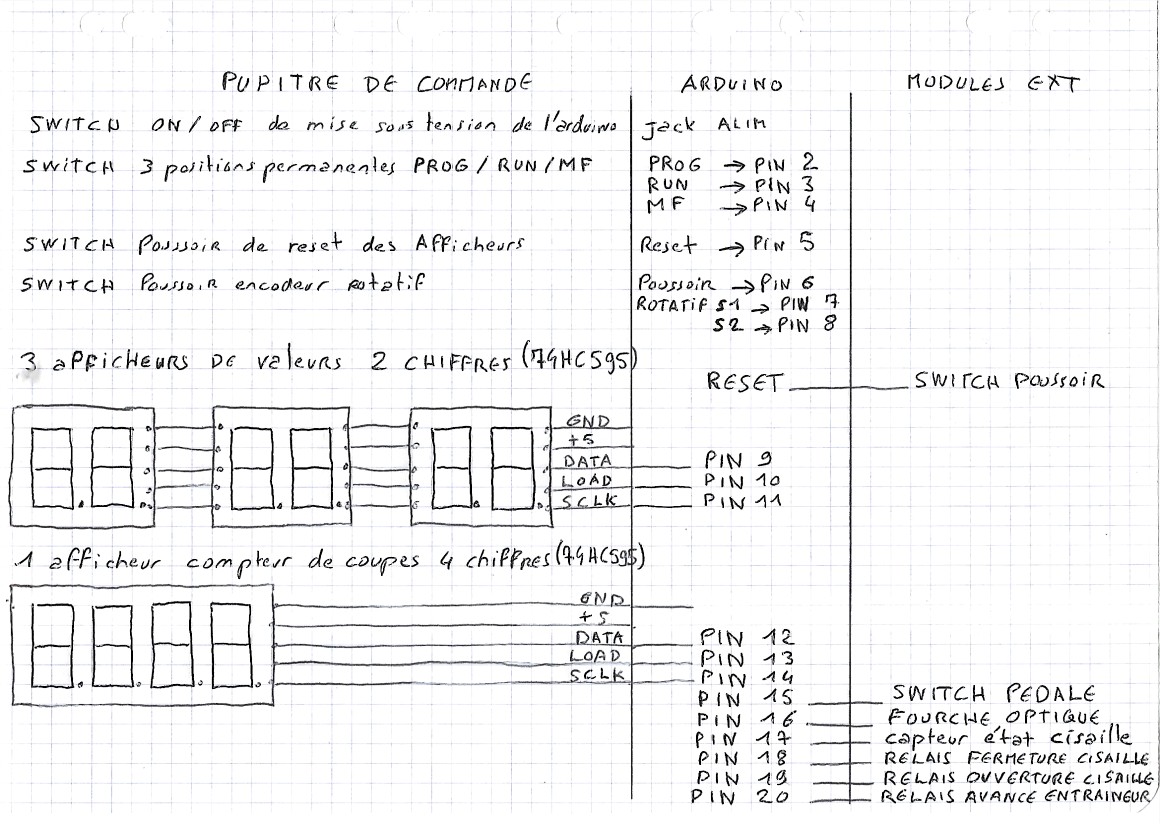 PUPITRE DE COMMANDE ARDUINO MODULES EXT
SWITCH ON / OFF de mise sous tension de l'arduino Jack ALIM
SWITCH 3 positions permanentes PROG / RUN / MF PROG → PIN 2
RUN → PIN 3
MF → PIN 4
SWITCH Poussoir de reset des Afficheurs Reset → Pin 5
SWITCH Poussoir encodeur rotatif Poussoir → PIN 6
ROTATIF S1 → PIN 7
S2 → PIN 8
3 afficheurs DE valeurs 2 CHIFFRES (74HC595)
RESET SWITCH POUSSOIR
GND
+5
DATA PIN 9
LOAD PIN 10
SCLK PIN 11
1 afficheur compteur de coupes 4 chiffres (74HC595)
GND
+5
DATA PIN 12
LOAD PIN 13
SCLK PIN 14
PIN 15 SWITCH PEDALE
PIN 16 FOURCHE OPTIQUE
PIN 17 capteur état cisaille
PIN 18 RELAIS FERMETURE CISAILLE
PIN 19 RELAIS OUVERTURE CISAILLE
PIN 20 RELAIS AVANCE ENTRAINEUR